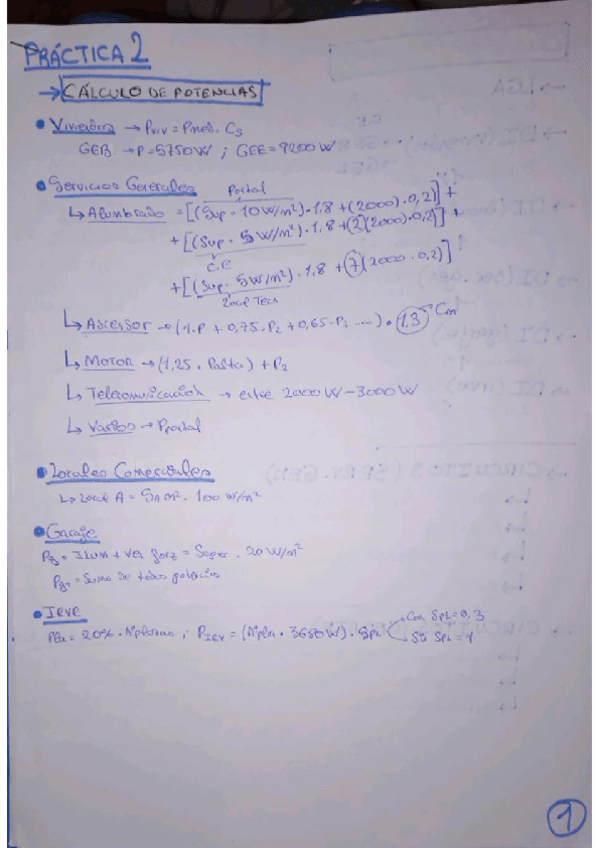 PRÁCTICA 2
→ CÁLCULO DE POTENCIAS
• Viviendas → Pviv = Pmed. Cs
GEB → P=5750W ; GEE = 9200W
• Servicios Generales Portal
↳ Alumbrado = [(Sup · 10W/m²)·1,8 + (2000)·0,2)] +
+ [(Sup · 5W/m²)·1,8 + (2)(2000)·0,2)] +
C.E
+ [(Sup · 5W/m²)·1,8 + (7)(2000·0,2)]
Local Tech
↳ Ascensor → (1·P + 0,75·P₂ + 0,65·P₃ ...) · 1,3 Cm
↳ Motor → (1,25 · Palta) + P₂
↳ Telecomunicación → entre 2000W - 3000W
↳ Varios → Pportal
• Locales Comerciales
↳ Local A = SA m² · 100 W/m²
• Garaje
Pg = Ilum + Ven forz = Super · 20W/m²
PgT = Suma de todas potencias
• Irve
Pla = 20% · Nºplazas ; PIrv = (Nºpla · 3680W) · SPL Con SPL = 0,3
Sin SPL = 1
1
→ LGA
→ CIRCUITOS (SERV. GEN)